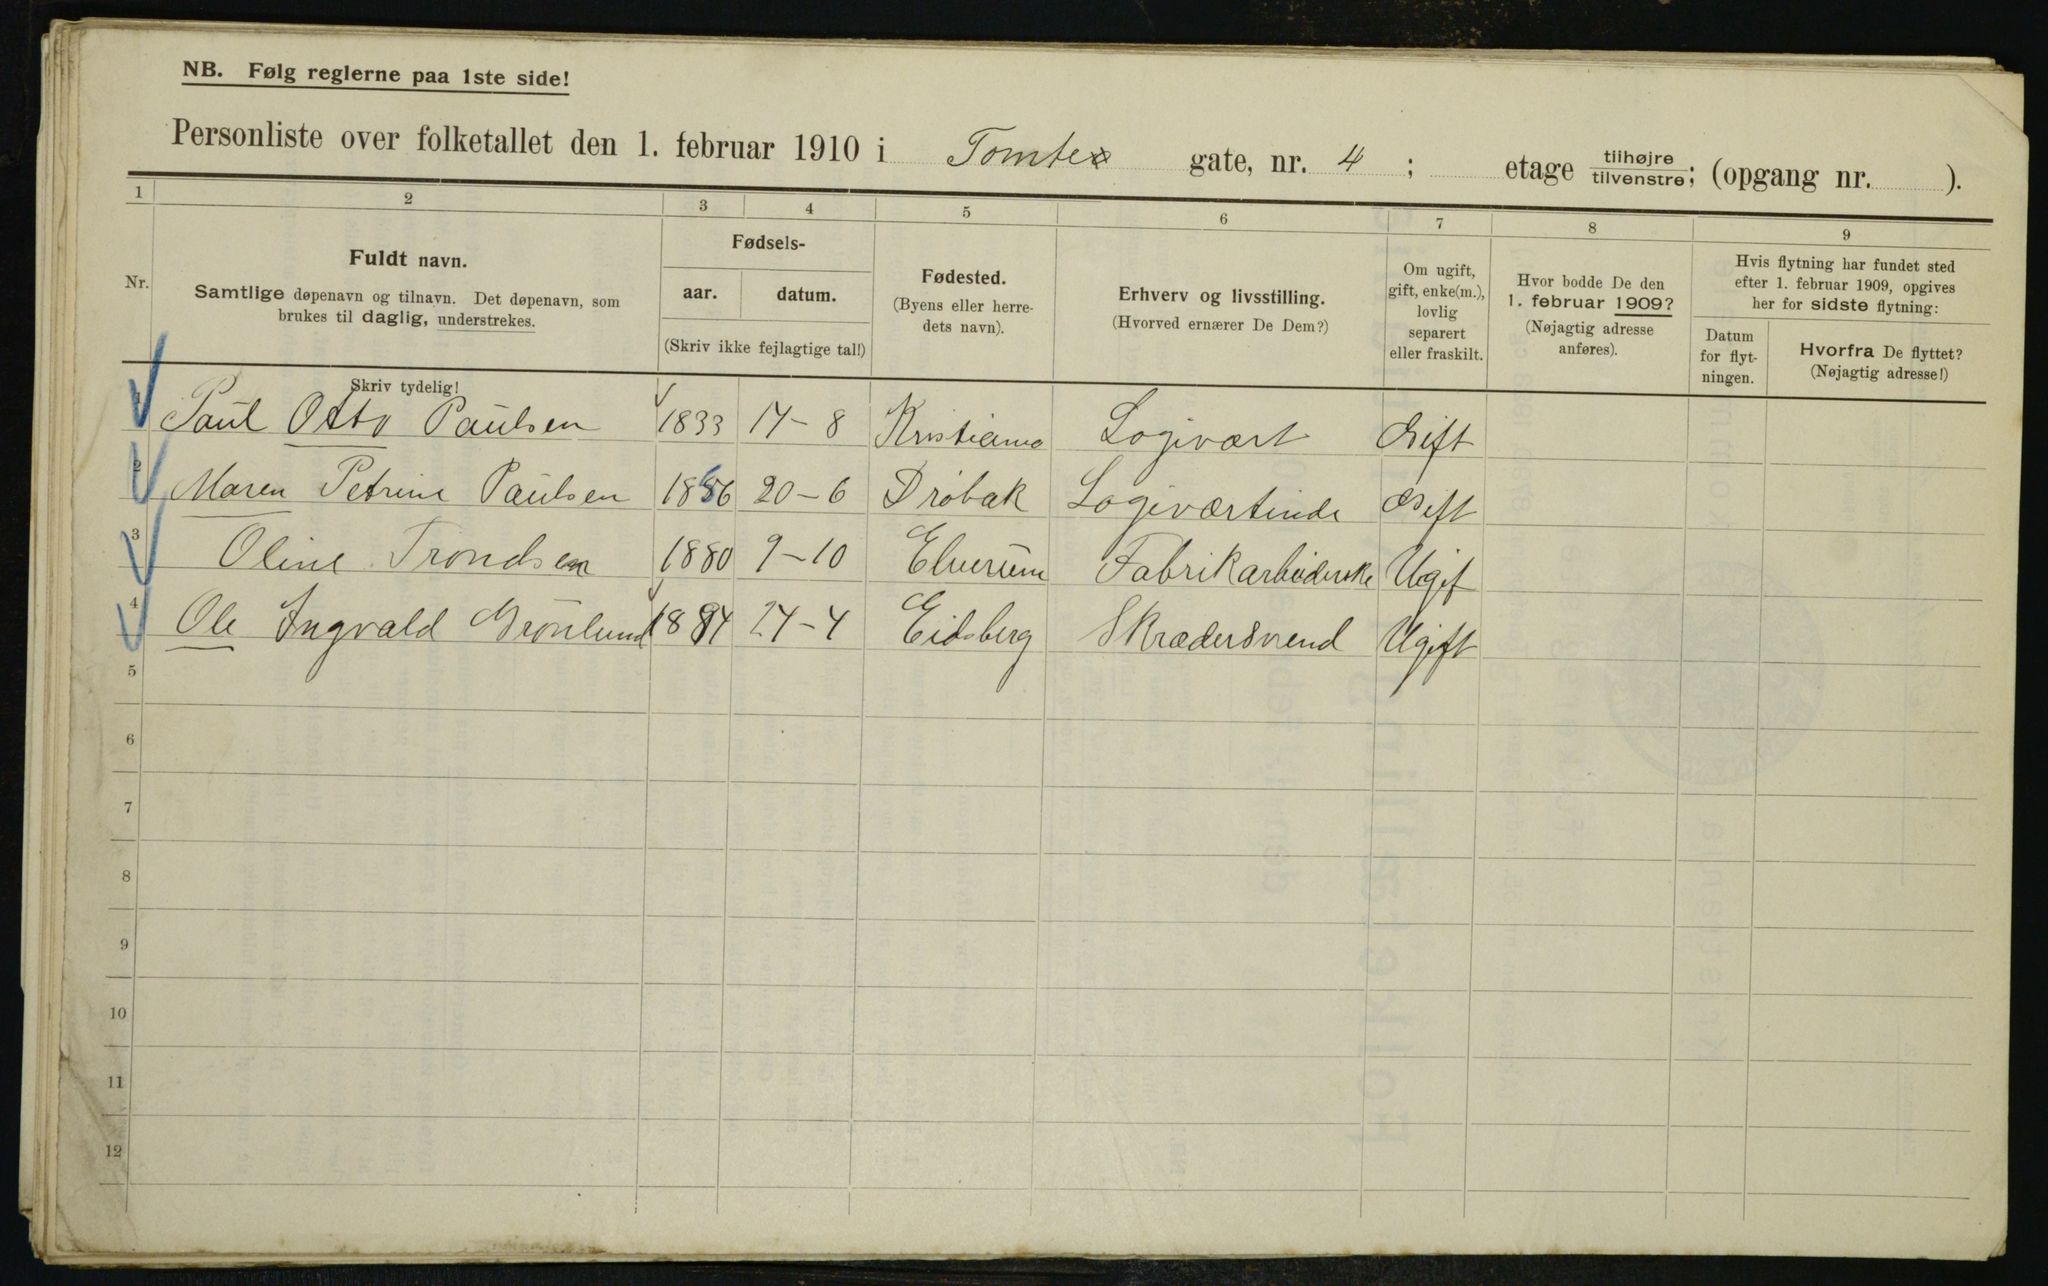 NB. Følg reglerne paa 1ste side!
Personliste over folketallet den 1. februar 1910 i Tomte gate, nr. 4 ; etage tilhøjre tilvenstre; (opgang nr. ).
1 2 3 4 5 6 7 8 9
Nr.
Fuldt navn.
Samtlige døpenavn og tilnavn. Det døpenavn, som
brukes til daglig, understrekes.
Skriv tydelig!
Fødsels-
aar. datum.
(Skriv ikke fejlagtige tal!)
Fødested.
(Byens eller herre-
dets navn).
Erhverv og livsstilling.
(Hvorved ernærer De Dem?)
Om ugift,
gift, enke(m.),
lovlig
separert
eller fraskilt.
Hvor bodde De den
1. februar 1909?
(Nøjagtig adresse
anføres).
Hvis flytning har fundet sted
efter 1. februar 1909, opgives
her for sidste flytning:
Datum
for flyt-
ningen.
Hvorfra De flyttet?
(Nøjagtig adresse!)
1 Paul Otto Paulsen 1833 14-8 Kristiania Logivært Gift
2 Maren Petrine Paulsen 1856 20-6 Drøbak Logiværtinde Gift
3 Oline Trondsen 1880 9-10 Elverum Fabrikarbeiderske Ugif
4 Ole Ingvald Grønlund 1884 24-4 Eidsberg Skrædersvend Ugift
5
6
7
8
9
10
11
12